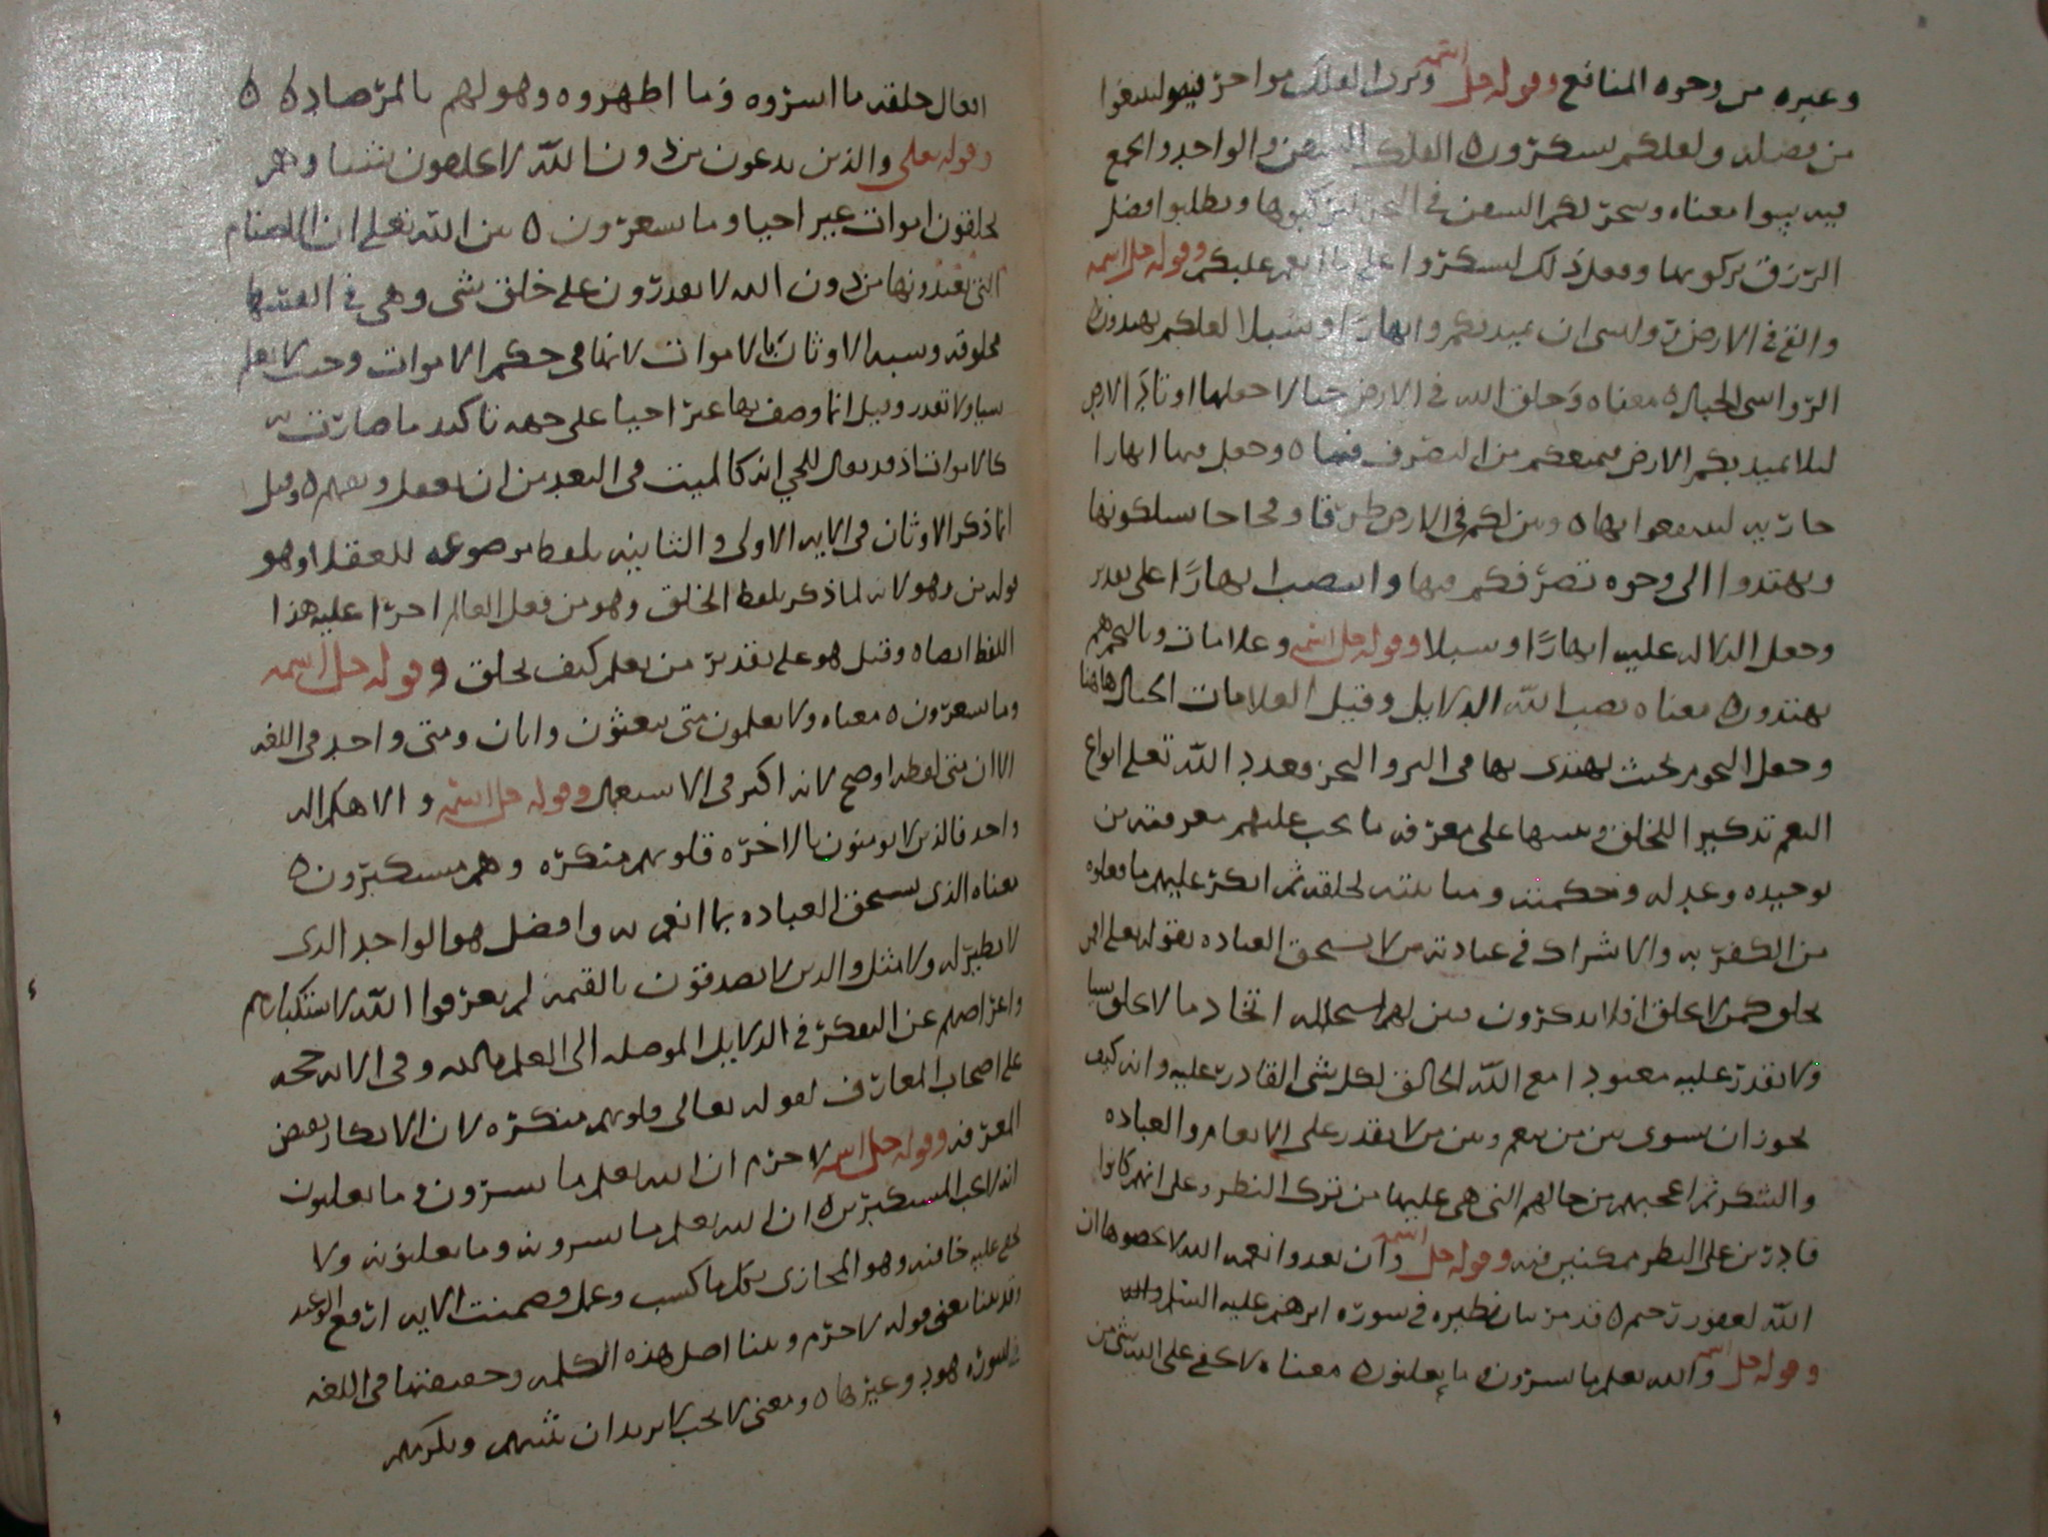 وغيره من وجوه المنافع وقوله جل اسمه وترى الفلك مواخر فيه ولتبتغوا
من فضله ولعلكم تشكرون ه الفلك السفن والواحد والجمع
فيه سوا معناه وسخر لكم السفن في البحر لتركبوها وتطلبوا فضل
الرزق بركوبها وفعل ذلك لتشكروا على ما انعم عليكم وقوله جل اسمه
والقى في الارض رواسي ان تميد بكم وانهارًا وسبلا لعلكم تهتدون ه
الرواسي الجبال ه معناه وخلق الله في الارض جبالا جعلها اوتاد الارض
ليلا تميد بكم الارض فيمنعكم من التصرف فيها ه وجعل فيها انهارا
جارية لتنتفعوا بها ه وبين لكم في الارض طرقا وفجاجا تسلكونها
وتهتدوا الى وجوه تصرفكم فيها وانتصب انهارًا على تقدير
وجعل الدلالة عليه انهارًا وسبلا وقوله جل اسمه وعلامات وبالنجم هم
يهتدون ه معناه نصب الله الدلايل وقيل العلامات الجبال هاهنا
وجعل النجوم بحيث يهتدى بها في البر والبحر فعدد الله تعلى انواع
النعم تذكيرا للخلق وتنبيها على معرفة ما يجب عليهم معرفته من
توحيده وعدله وحكمته ومباينته لخلقه ثم انكر عليهم ما فعلوه
من الكفر به والاشراك في عبادته من لا يستحق العباده بقوله تعلى افمن
يخلق كمن لا يخلق افلا تذكرون فبين لهم استحاله اتخاذ ما لا يخلق شيا
ولا يقدر عليه معبودا مع الله الخالق لكل شي القادر عليه وانه كيف
يجوز ان يسوى بين من ينعم وبين من لا يقدر على الانعام والعباده
والشكر ثم اعجبهم من حالهم التي هي عليها من ترك النظر وعلى انهم كانوا
قادرين على النظر ممكنين فيه وقوله جل اسمه وان تعدوا نعمه الله لا تحصوها ان
الله لغفور رحيم ه قد مر بيان نظيره في سوره ابرهيم عليه السلم
وقوله جل اسمه والله يعلم ما تسرون وما تعلنون ه معناه لا يخفى على الله شي من
افعال خلقه ما اسروه وما اظهروه وهو لهم بالمرصاد ه
وقوله تعلى والذين يدعون من دون الله لا يخلقون شيا وهم
يخلقون اموات غير احيا وما يشعرون ه بين الله تعلى ان الاصنام
التي يعبدونها من دون الله لا يقدرون على خلق شي وهي في انفسها
مخلوقه وشبه الاوثان بالاموات لانها في حكم الاموات وحيث لا تعلم
شيا ولا تقدر وقيل انما وصفها غير احيا على جهه تاكيد ما صارت به
كالاموات اذ قد يقال للحي انه كالميت في البعد من ان يعقل ويفهم ه وقيل
انما ذكر الاوثان في الايه الاولى والثانيه بلفظ موضوعه للعقلا وهو
قوله من وهو لانه لما ذكر بلفظ الخلق وهو من فعل العالم اجرا عليه هذا
اللفظ ايضا ه وقيل هو على تقدير من يعلم كيف يخلق وقوله جل اسمه
وما يشعرون ه معناه ولا يعلمون متى يبعثون وايان ومتى واحد في اللغه
الا ان متى لفظه اوضح لانه اكثر في الاستعمال وقوله جل اسمه والاهكم اله
واحد فالذين لا يومنون بالاخره قلوبهم منكره وهم مستكبرون ه
معناه الذي يستحق العباده بما انعم به وافضل هو الواحد الذي
لا نظير له ولا مثل والذين لا يصدقون بالقيمه لم يعرفوا الله لاستكبارهم
واعراضهم عن التفكر في الدلايل الموصله الى العلم بالله وفي الايه حجه
على اصحاب المعارف لقوله تعالى قلوبهم منكره لان الانكار نقيض
المعرفه وقوله جل اسمه لا جرم ان الله يعلم ما يسرون وما يعلنون
انه لا يحب المستكبرين ه ان الله يعلم ما يسرونه وما يعلنونه ولا
يخفى عليه خافيه وهو المجازي بكل ما كسب وعمل وضمنت الايه ارفع الوعيد
وقد بينا معنى قوله لا جرم وبينا اصل هذه الكلمه وحقيقتها في اللغه
في سوره هود وغيرها ه ومعنى لا يحب لا يريد ان يثيبهم ويكرمهم